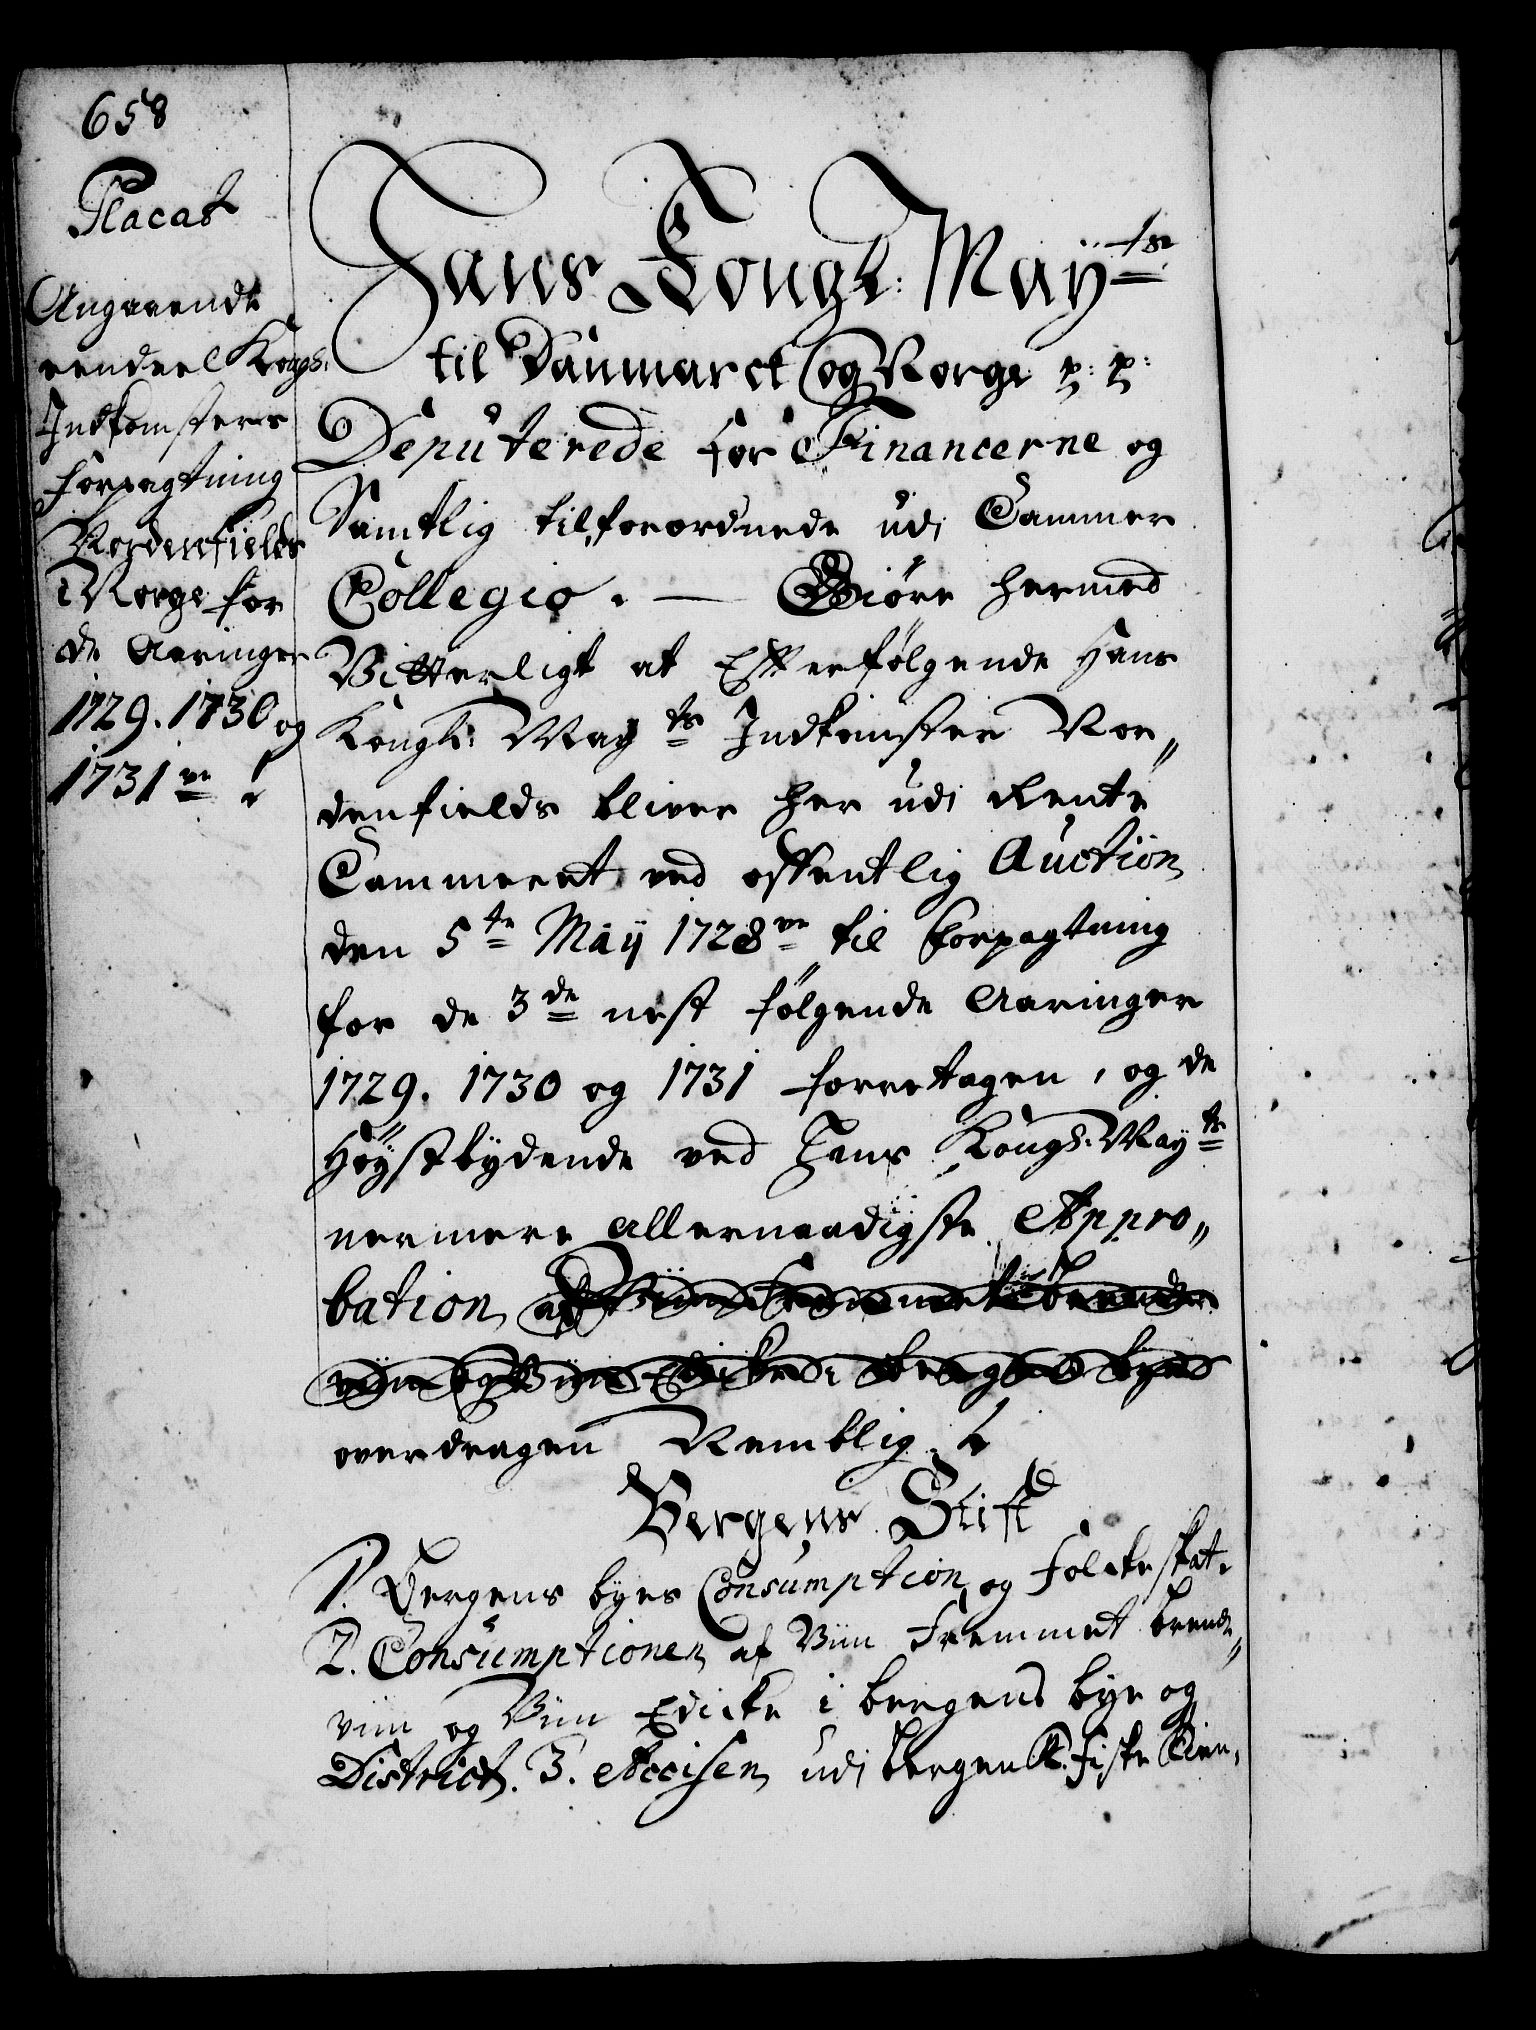 658
Placat
Angaaende
eendeel Kongl:
Indkomsters
forpagtning
Nordenfields
i Norge for
de Aaringer
1729. 1730 og
1731ve
Hans Kongl: Mayts
til Danmarck og Norge p: p:
Deputerede for Financerne og
Samtlig tilforordnede udi Cammer
Collegio. — Giøre hermed
Vitterligt at Efterfølgende Hans
Kongl: Mayts Indkomster Nor„
denfields bliver her udi Rente
Cammeret ved offentlig Auction
den 5te Maÿ 1728ve til forpagtning
for de 3de nest følgende Aaringer
1729. 1730 og 1731 foretagen, og de
Høystbydende ved Hans Kongl. Mayts
nermere allernaadigste Appro„
bation af Viin fremmet brende
viin og Viin Edicke i bergens bye
overdragen Nemblig
Bergens Stift
1. Bergens byes Consumption og Folckeskat.
2. Consumptionen af Viin fremmet brende„
viin og Viin Edicke i bergens bye og
District. 3. Accisen udi bergen